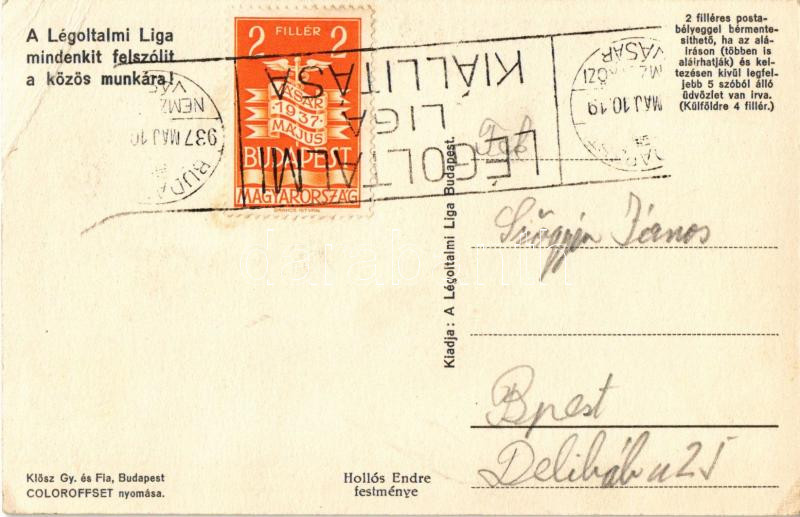 A Légoltalmi Liga
mindenkit felszólít
a közös munkára!
2 FILLÉR 2
VÁSÁR
1937
MÁJUS
BUDAPEST
MAGYARORSZÁG
LÉGOLTALMI
LIGA
KIÁLLITÁSA
937 MÁJ 10
MÁJ.10.19
2 filléres posta-
bélyeggel bérmente-
sithető, ha az alá-
iráson (többen is
aláirhatják) és kel-
tezésen kivül legfel-
jebb 5 szóból álló
üdvözlet van irva.
(Külföldre 4 fillér.)
Kiadja: A Légoltalmi Liga Budapest.
János
Bpest
Delibáb u 25
Klösz Gy. és Fia, Budapest
COLOROFFSET nyomása.
Hollós Endre
festménye